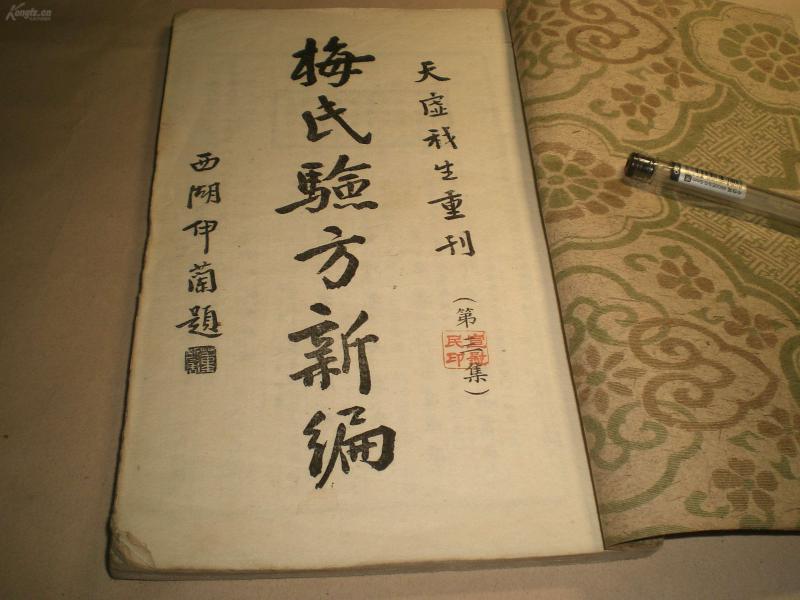 天虚我生重刊
(第二集)
梅氏驗方新編
西湖伊蘭題
Kongfz.cn